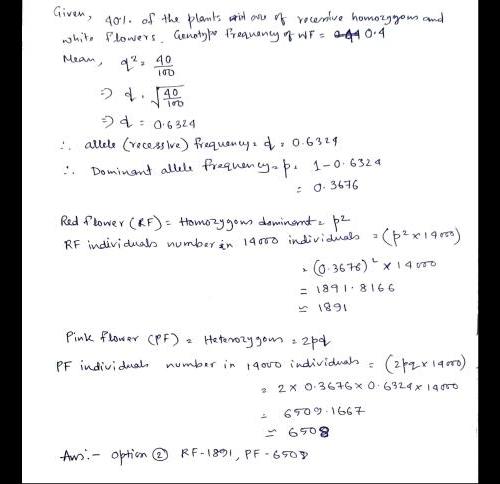 Given, 40% of the plants are of recessive homozygous and
white flowers. Genotype frequency of WF = 0.4
Mean, q² = 40/100
=> q = √40/100
=> q = 0.6324
∴ allele (recessive) frequency = q = 0.6324
∴ Dominant allele frequency = p = 1-0.6324
= 0.3676
Red flower (RF) = Homozygous dominant = p²
RF individuals number in 14000 individuals = (p² × 14000)
= (0.3676)² × 14000
= 1891.8166
≃ 1891
Pink flower (PF) = Heterozygous = 2pq
PF individuals number in 14000 individuals = (2pq × 14000)
= 2 × 0.3676 × 0.6324 × 14000
= 6509.1667
≃ 6508
Ans:- option ② RF-1891, PF-6508